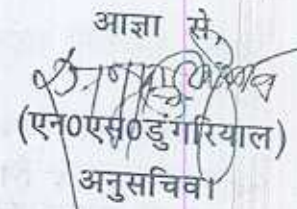 आज्ञा से,
(एन0एस0डुंगरियाल)
अनुसचिव।